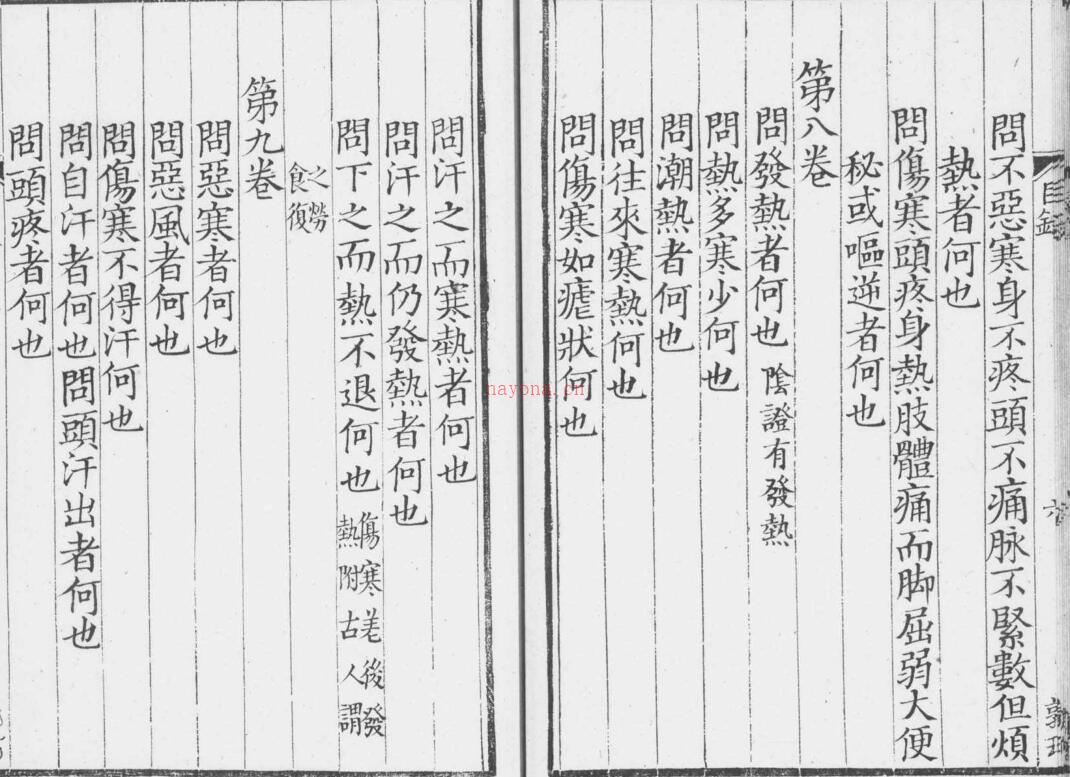 目録
六
問不惡寒身不疼頭不痛脉不緊數但煩
熱者何也
問傷寒頭疼身熱肢體痛而脚屈弱大便
秘或嘔逆者何也
第八卷
問發熱者何也 陰證有發熱
問熱多寒少何也
問潮熱者何也
問往來寒熱何也
問傷寒如瘧狀何也
問汗之而寒熱者何也
問汗之而仍發熱者何也
問下之而熱不退何也 傷寒差後發
熱附古人謂
之勞
食復
第九卷
問惡寒者何也
問惡風者何也
問傷寒不得汗何也
問自汗者何也問頭汗出者何也
問頭疼者何也
nayona.cn